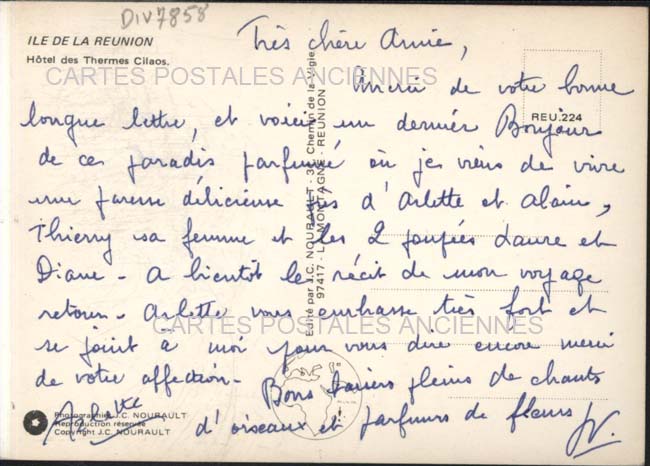 DIV7858
ILE DE LA REUNION
Hôtel des Thermes Cilaos.
CARTES POSTALES ANCIENNES
REU.224
Très chère Annie,
Merci de votre bonne
longue lettre, et voici un dernier Bonjour
de ces paradis parfumé où je viens de vivre
une paresse délicieuse près d'Arlette et Alain,
Thierry sa femme et les 2 poupées Laure et
Diane - A bientôt le récit de mon voyage
retour - Arlette vous embrasse très fort et
se joint à moi pour vous dire encore merci
de votre affection - Bons baisers pleins de chants
d'oiseaux et parfums de fleurs
Arlette
Edité par J.C. NOURAULT - Chemin de la Vigie
97417 LA MONTAGNE - REUNION
CARTES POSTALES ANCIENNES
Photographie J.C. NOURAULT
Reproduction réservée
Copyright J.C. NOURAULT